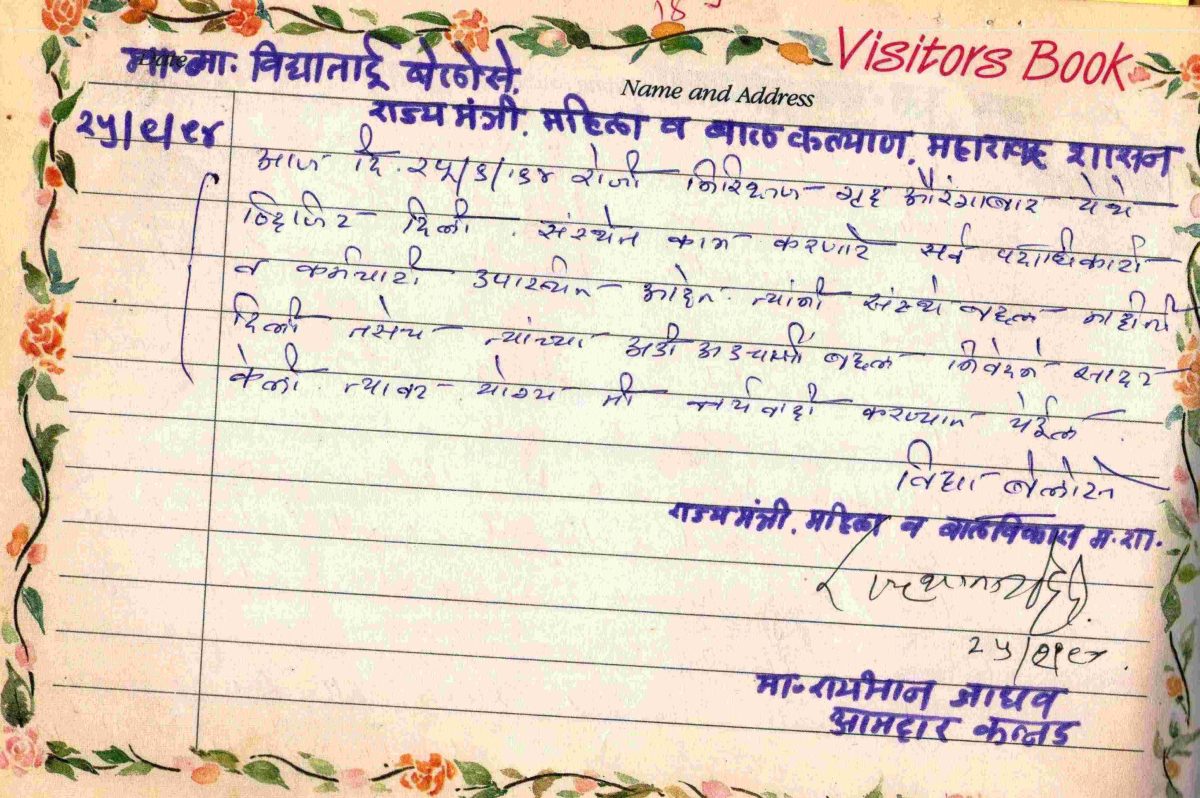 Visitors Book
मा.ना. विद्याताई बेलोसे.
Name and Address
राज्य मंत्री. महिला व बाल कल्याण. महाराष्ट्र शासन
२५/९/९४
आज दि. २५/९/९४ रोजी निरिक्षण गृह औरंगाबाद येथे
व्हिजिट दिली. संस्थेत काम करणारे सर्व पदाधिकारी
व कर्मचारी उपस्थित आहेत. त्यांनी संस्थे बद्दल माहीती
दिली तसेच त्यांच्या अडी अडचणीं बद्दल निवेदने सादर
केली. त्यावर योग्य ती कार्यवाही करण्यात येईल
विद्या बेलोसे
राज्यमंत्री. महिला व बालविकास म.शा.
मा. रायभान जाधव
आमदार कन्नड